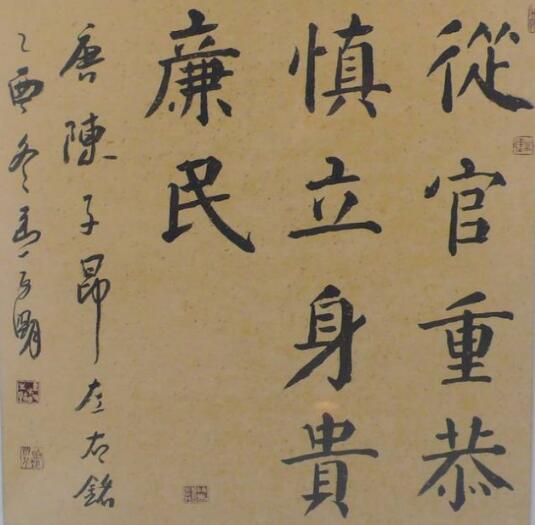 從官重恭
慎立身貴
廉民
唐陳子昂座右銘
乙酉冬